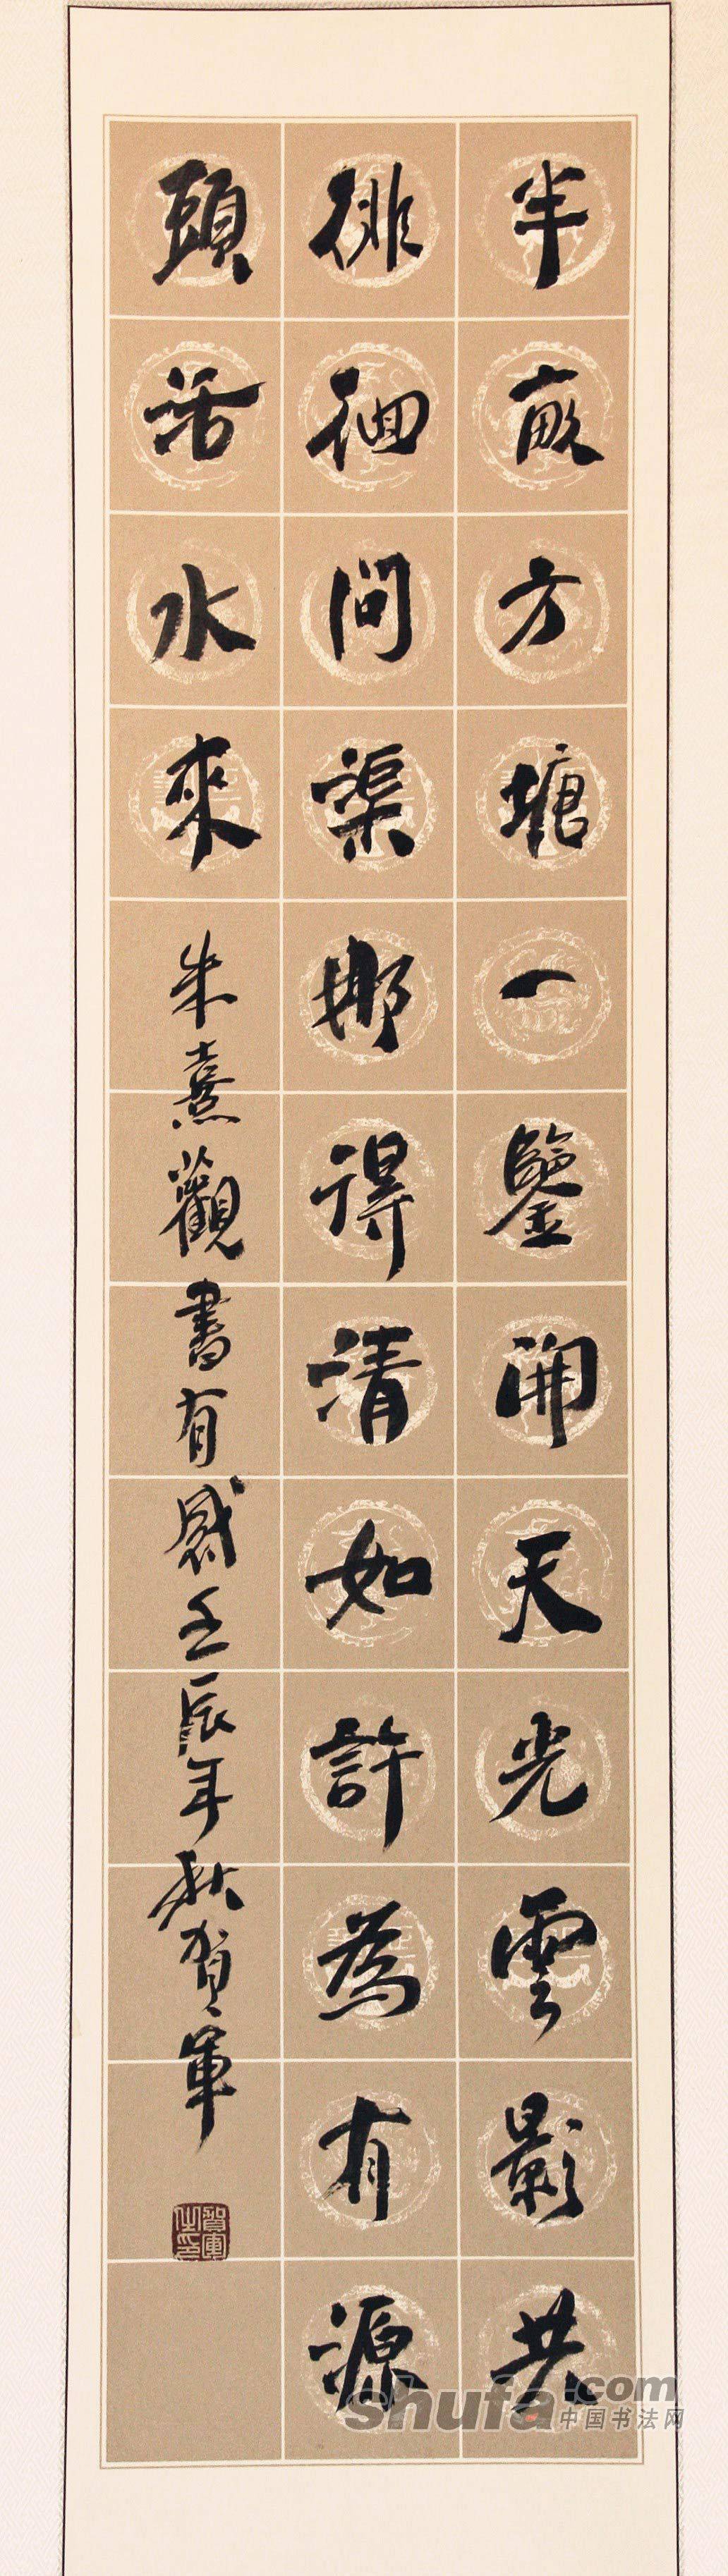 半畝方塘一鑒開天光雲影共
徘徊問渠那得清如許為有源
頭活水來 朱熹觀書有感壬辰年秋賀軍
賀軍之印
shufa.com
中国书法网